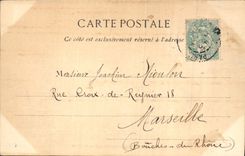 CARTE POSTALE
Ce côté est exclusivement réservé à l'adresse
Monsieur Joachim
Rue Croix-de-Reynier 18
Marseille
(Bouches-du-Rhône)